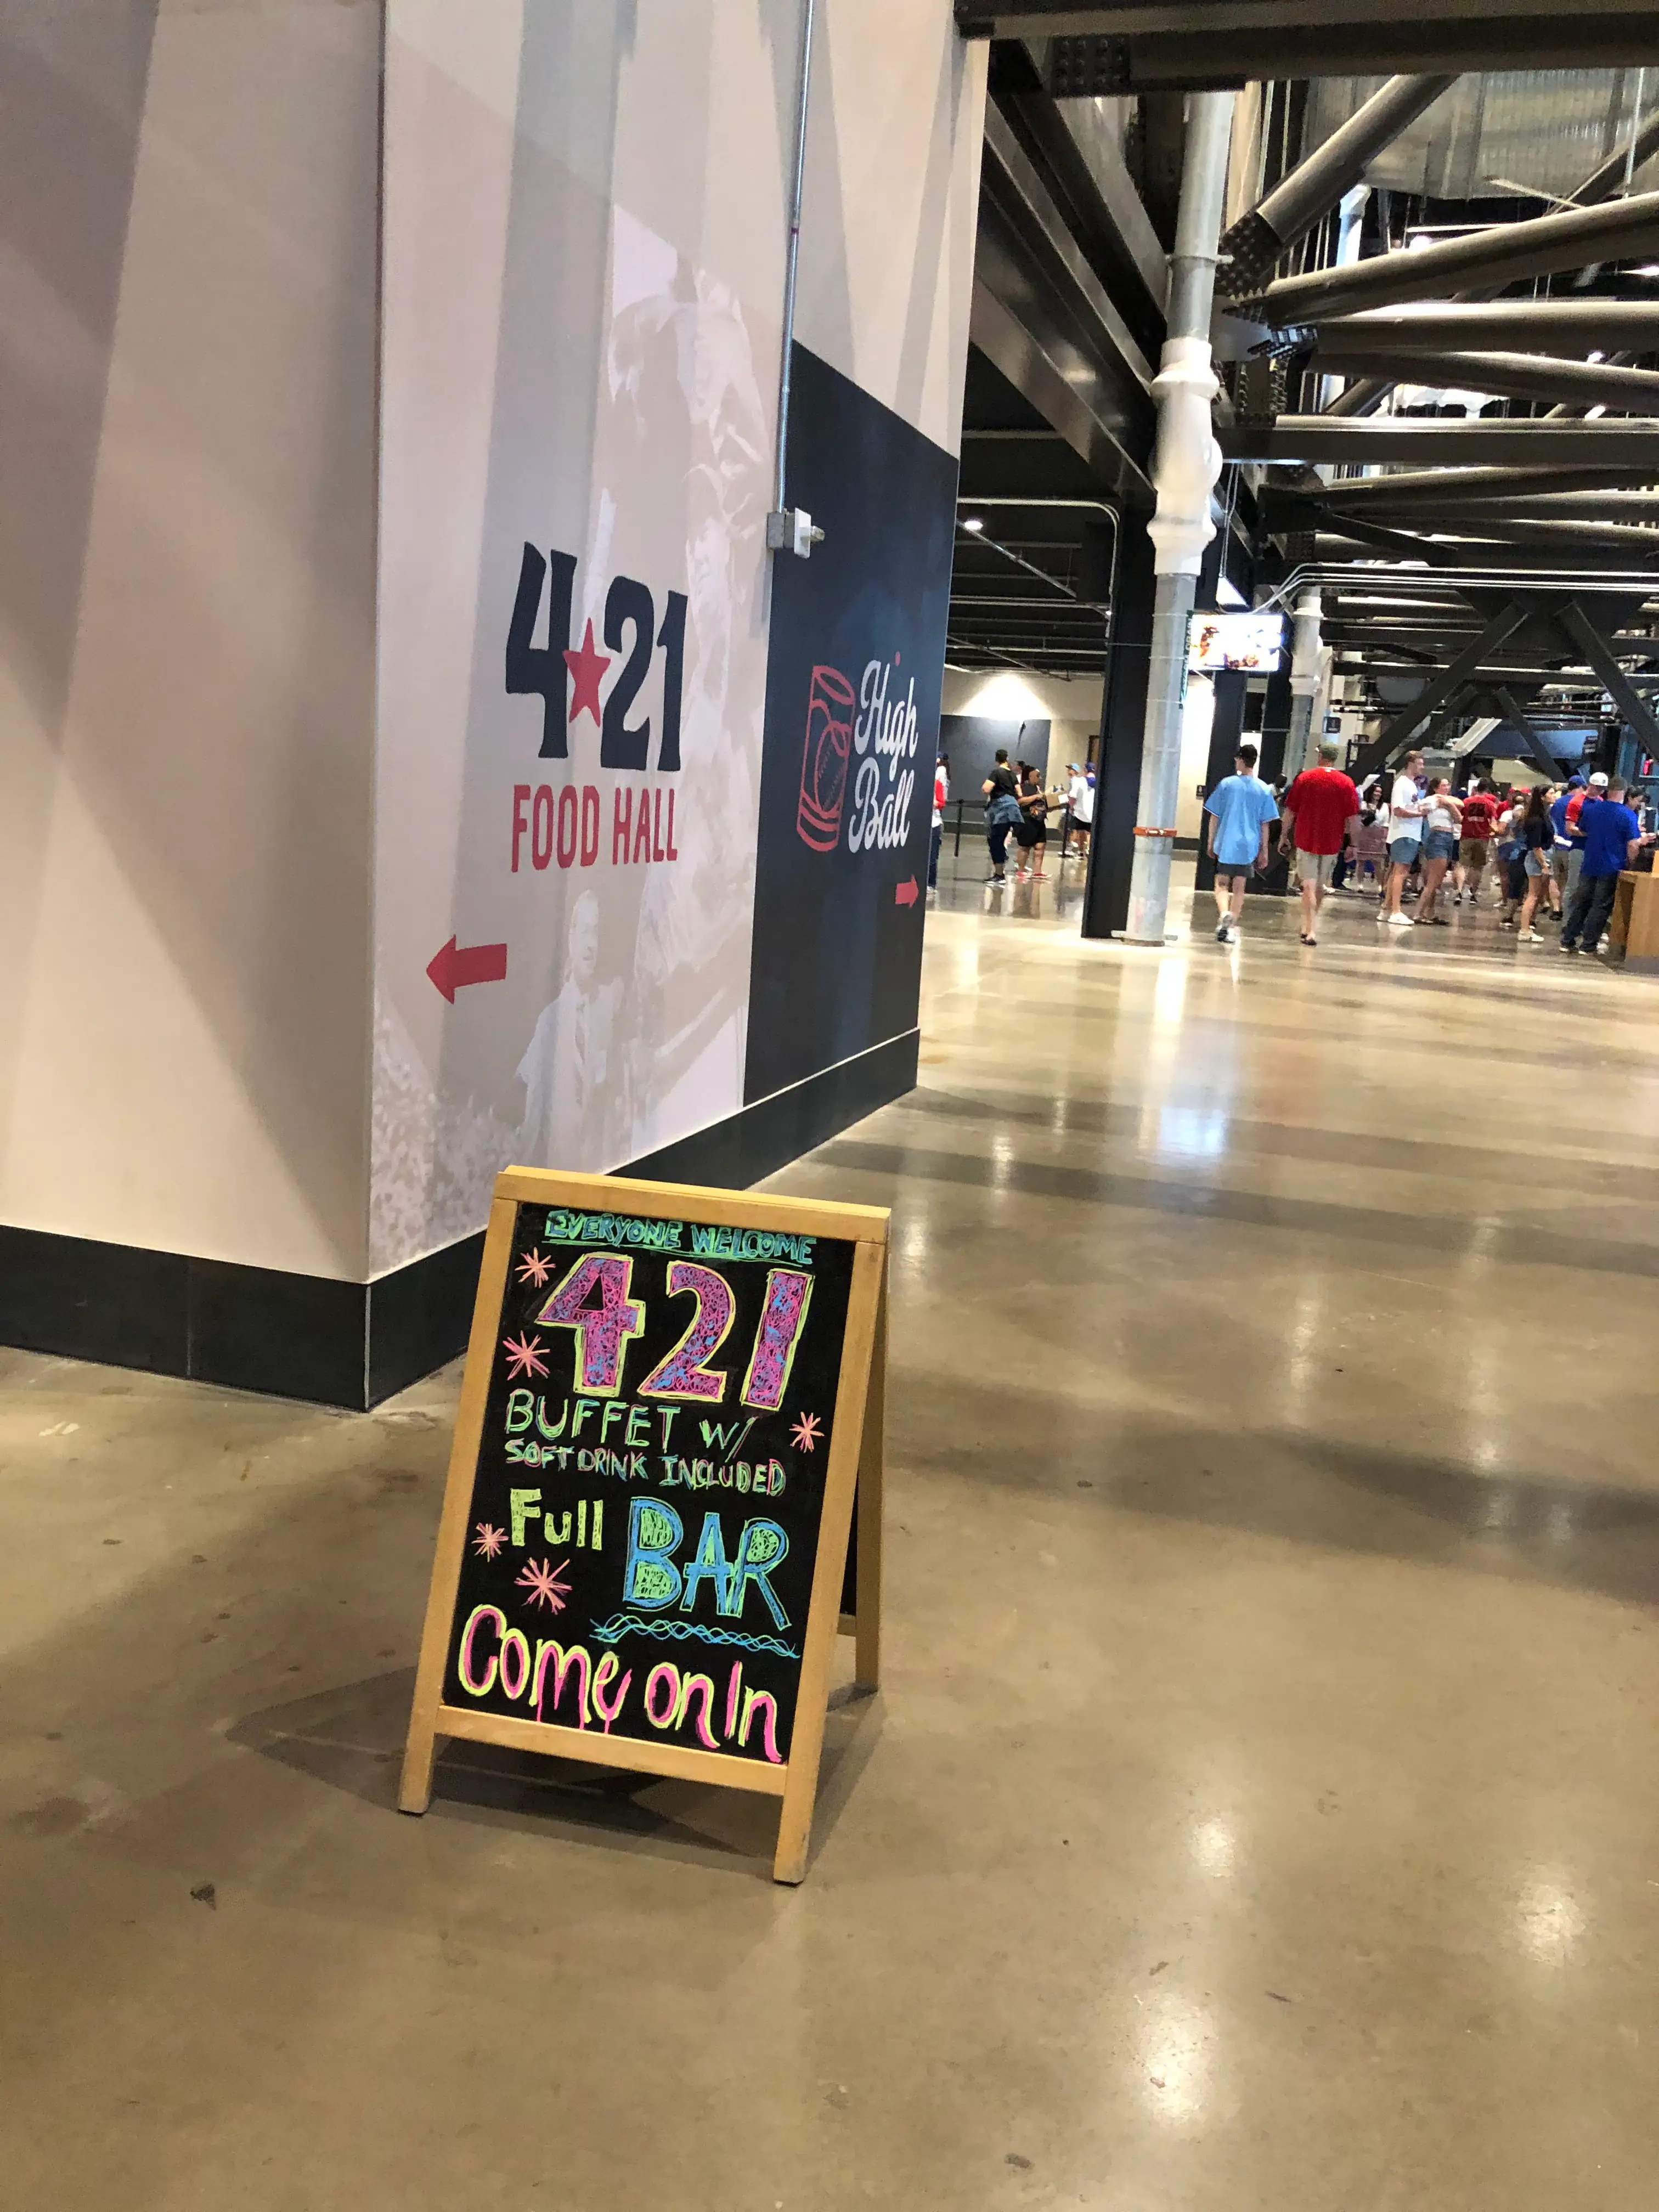 4★21
FOOD HALL
High
Ball
EVERYONE WELCOME
421
BUFFET W/
SOFT DRINK INCLUDED
Full BAR
Come on In